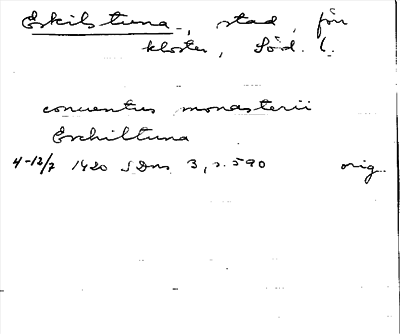 Eskilstuna, stad, förr
kloster, Söd. l.
conventus monasterii
Eschiltuna
4-12/7 1420 SDns 3, s. 590 orig.